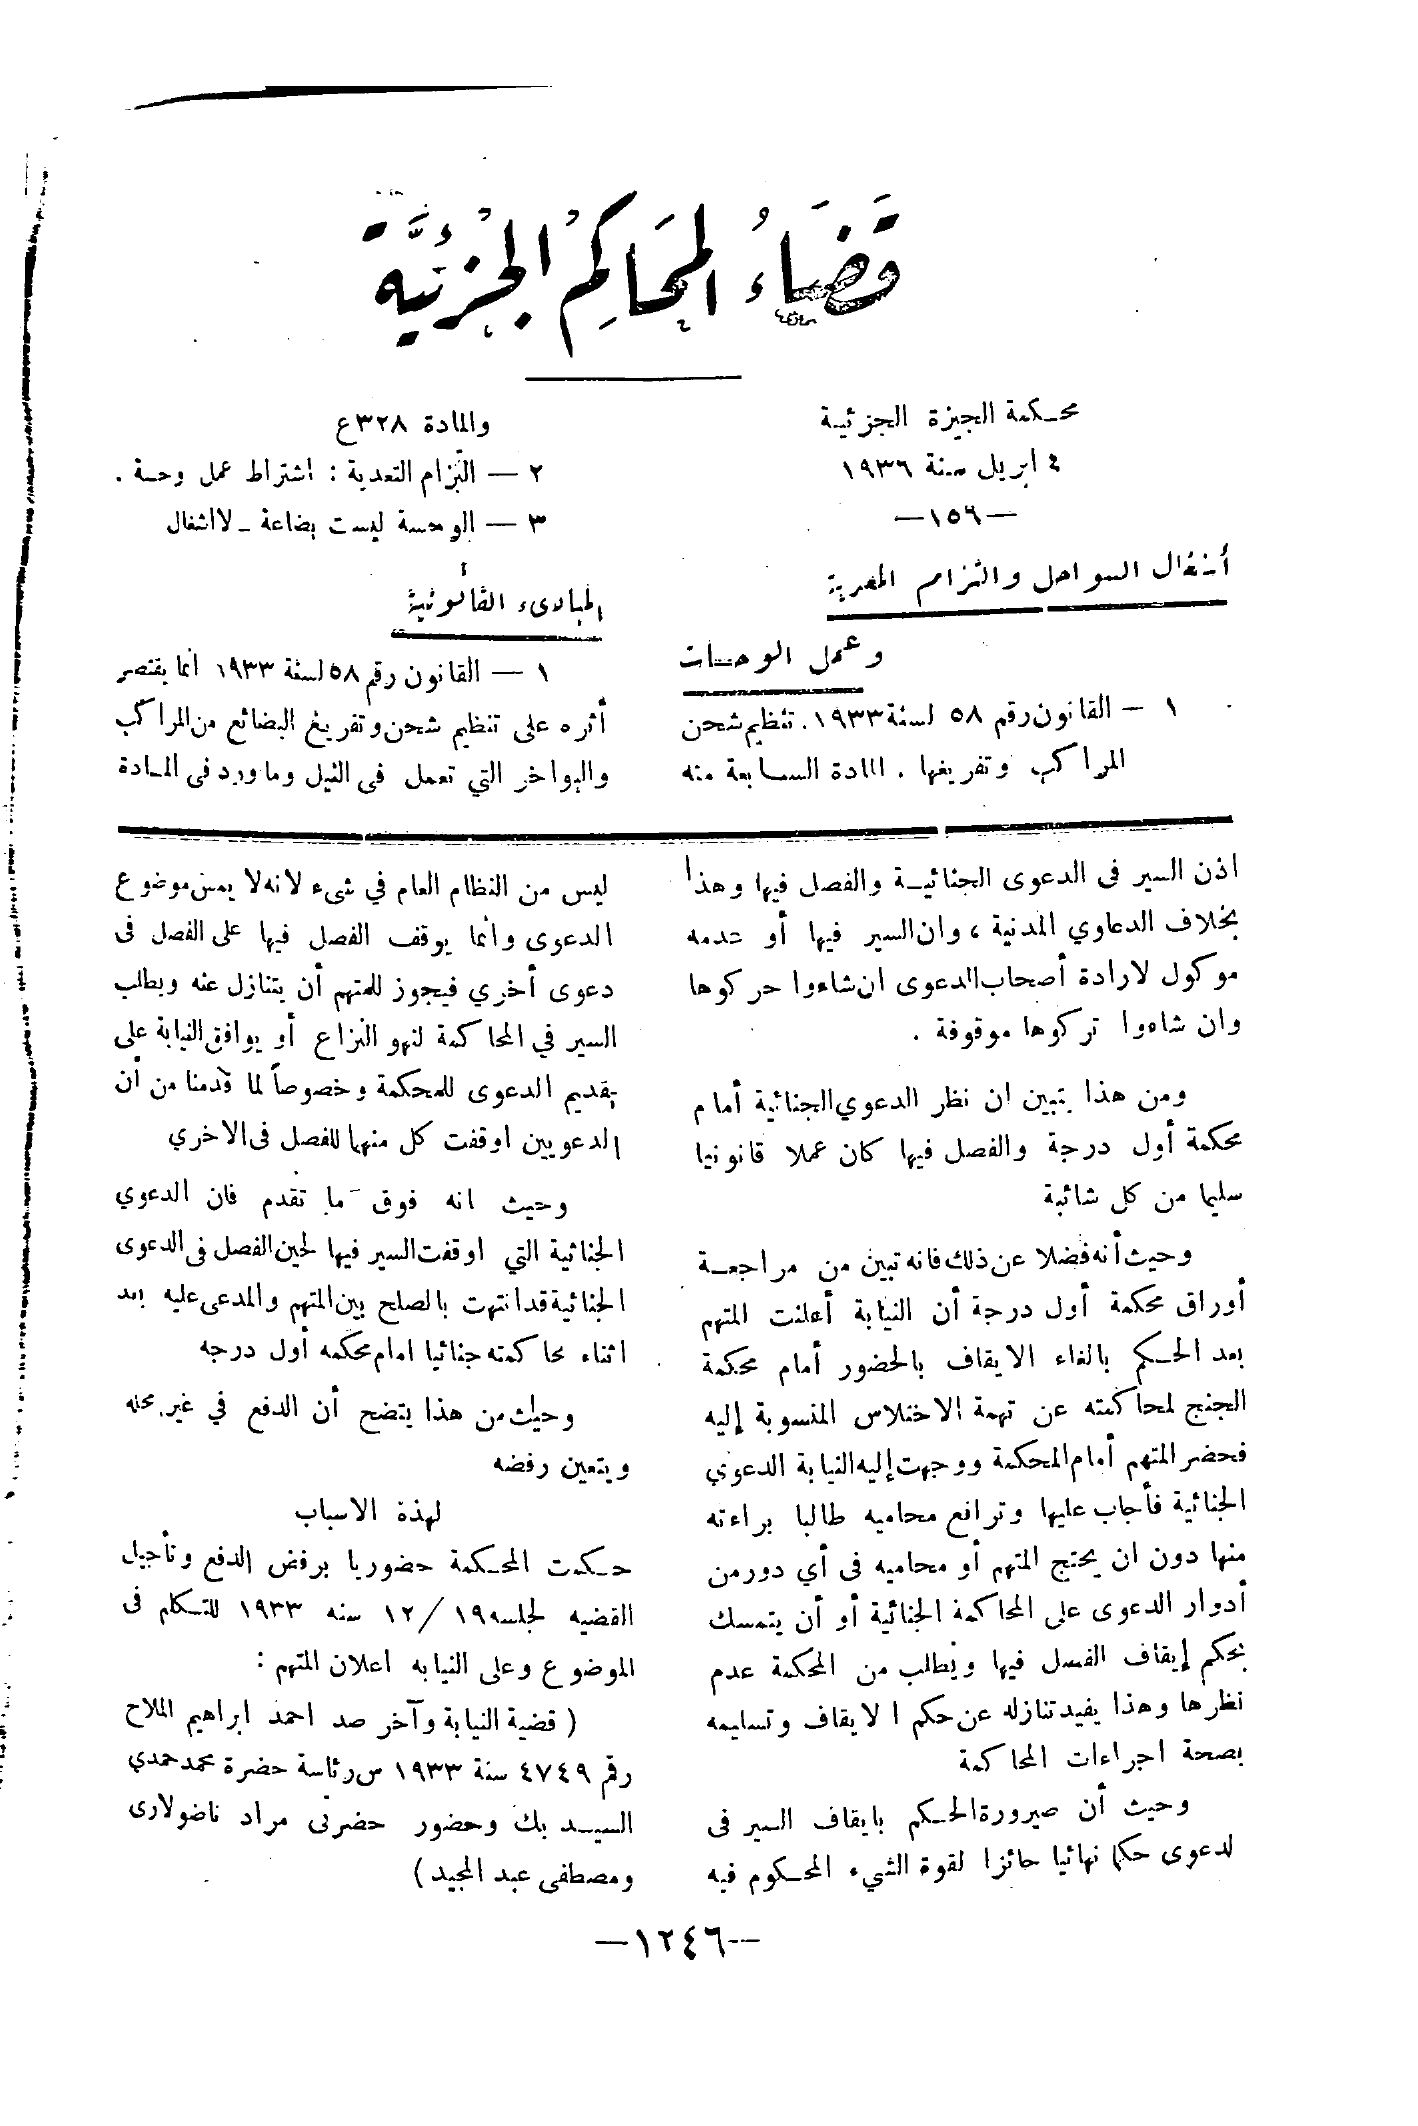 قَضَاءُ المحَاكِمُ الجُزئيَّة
محكمة الجيزة الجزئية
٤ ابريل سنة ١٩٣٦
—١٥٦—
أشغال السواحل والتزام المعدية
وعمل الوحسات
١ — القانون رقم ٥٨ لسنة ١٩٣٣. تنظيم شحن
المراكب وتفريغها . المادة السابعة منه
والمادة ٣٢٨ع
٢ — التزام التعدية : اشتراط عمل وحسة .
٣ — الوحسة ليست بضاعة _ لا أشغال
المبادىء القانونية
١ — القانون رقم ٥٨ لسنة ١٩٣٣ انما يقتصر
أثره على تنظيم شحن وتفريغ البضائع من المراكب
والبواخر التي تعمل فى النيل وما ورد فى المادة
اذن السير فى الدعوى الجنائية والفصل فيها وهذا
بخلاف الدعاوي المدنية ، وان السير فيها أو عدمه
موكول لارادة أصحاب الدعوى ان شاءوا حركوها
وان شاءوا تركوها موقوفة .
ومن هذا يتبين ان نظر الدعوي الجنائية أمام
محكمة أول درجة والفصل فيها كان عملا قانونيا
سليما من كل شائبة
وحيث أنه فضلا عن ذلك فانه تبين من مراجعة
أوراق محكمة أول درجة أن النيابة أعلنت المتهم
بعد الحكم بالغاء الايقاف بالحضور أمام محكمة
الجنح لمحاكمته عن تهمة الاختلاس المنسوبة إليه
فحضر المتهم أمام المحكمة ووجهت إليه النيابة الدعوي
الجنائية فأجاب عليها وترافع محاميه طالبا براءته
منها دون ان يحتج المتهم أو محاميه فى أي دور من
أدوار الدعوى على المحاكمة الجنائية أو أن يتمسك
بحكم إيقاف الفصل فيها ويطلب من المحكمة عدم
نظرها وهذا يفيد تنازله عن حكم الايقاف وتسليمه
بصحة اجراءات المحاكمة
وحيث أن صيرورة الحكم بايقاف السير فى
لدعوى حكما نهائيا حائزا لقوة الشيء المحكوم فيه
ليس من النظام العام في شىء لانه لا يمس موضوع
الدعوى وانما يوقف الفصل فيها على الفصل فى
دعوى أخري فيجوز للمتهم أن يتنازل عنه ويطلب
السير في المحاكمة لنهو النزاع أو يوافق النيابة على
تقديم الدعوى للمحكمة وخصوصاً لما قدمنا من أن
الدعويين اوقفت كل منهما للفصل فى الاخري
وحيث انه فوق ما تقدم فان الدعوي
الجنائية التي اوقفت السير فيها لحين الفصل فى الدعوى
الجنائية قد انتهت بالصلح بين المتهم والمدعى عليه بعد
اثناء محاكمته جنائيا امام محكمه أول درجه
وحيث من هذا يتضح أن الدفع في غير محله
ويتعين رفضه
لهذة الاسباب
حكمت المحكمة حضوريا برفض الدفع وتأجيل
القضيه لجلسه ١٩/ ١٢ سنه ١٩٣٣ للتكلم فى
الموضوع وعلى النيابه اعلان المتهم :
( قضية النيابة وآخر صد احمد ابراهيم الملاح
رقم ٤٧٤٩ سنة ١٩٣٣ س رئاسة حضرة محمد حمدي
السيد بك وحضور حضرتى مراد ناضولارى
ومصطفى عبد المجيد )
—١٢٤٦—